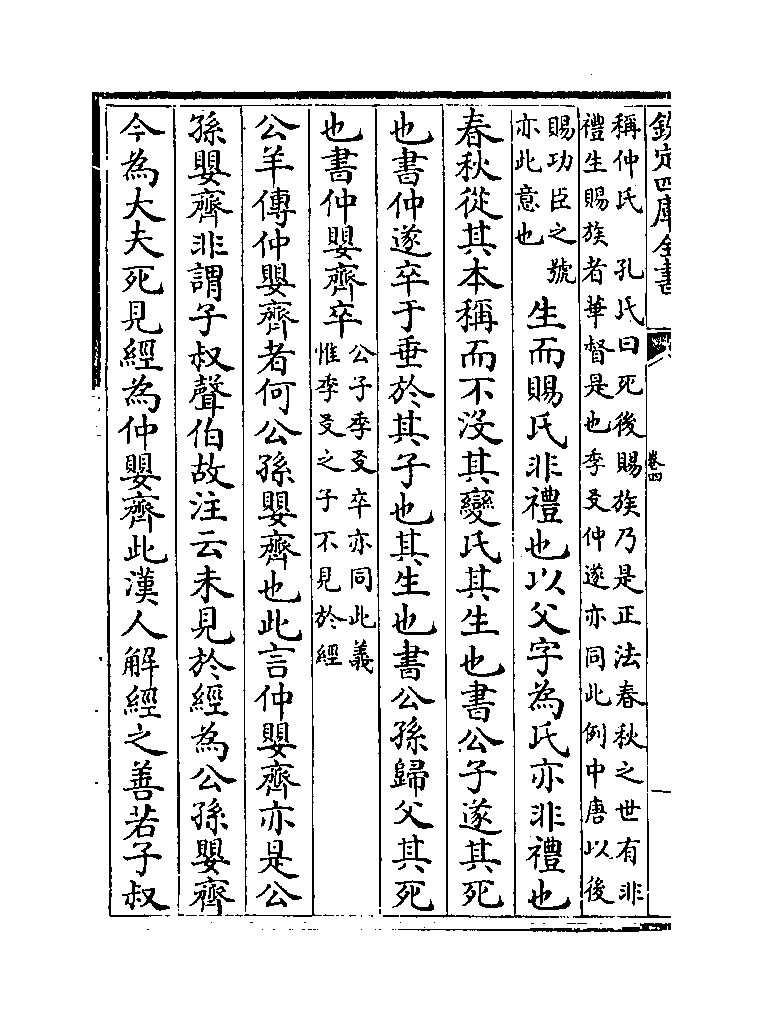 欽定四庫全書
卷四
稱仲氏　孔氏曰死後賜族乃是正法春秋之世有非
禮生賜族者華督是也季友仲遂亦同此例中唐以後
賜功臣之號
亦此意也
生而賜氏非禮也以父字為氏亦非禮也
春秋從其本稱而不沒其變氏其生也書公子遂其死
也書仲遂卒于垂於其子也其生也書公孫歸父其死
也書仲嬰齊卒
公子季友卒亦同此義
惟季友之子不見於經
公羊傳仲嬰齊者何公孫嬰齊也此言仲嬰齊亦是公
孫嬰齊非謂子叔聲伯故注云未見於經為公孫嬰齊
今為大夫死見經為仲嬰齊此漢人解經之善若子叔